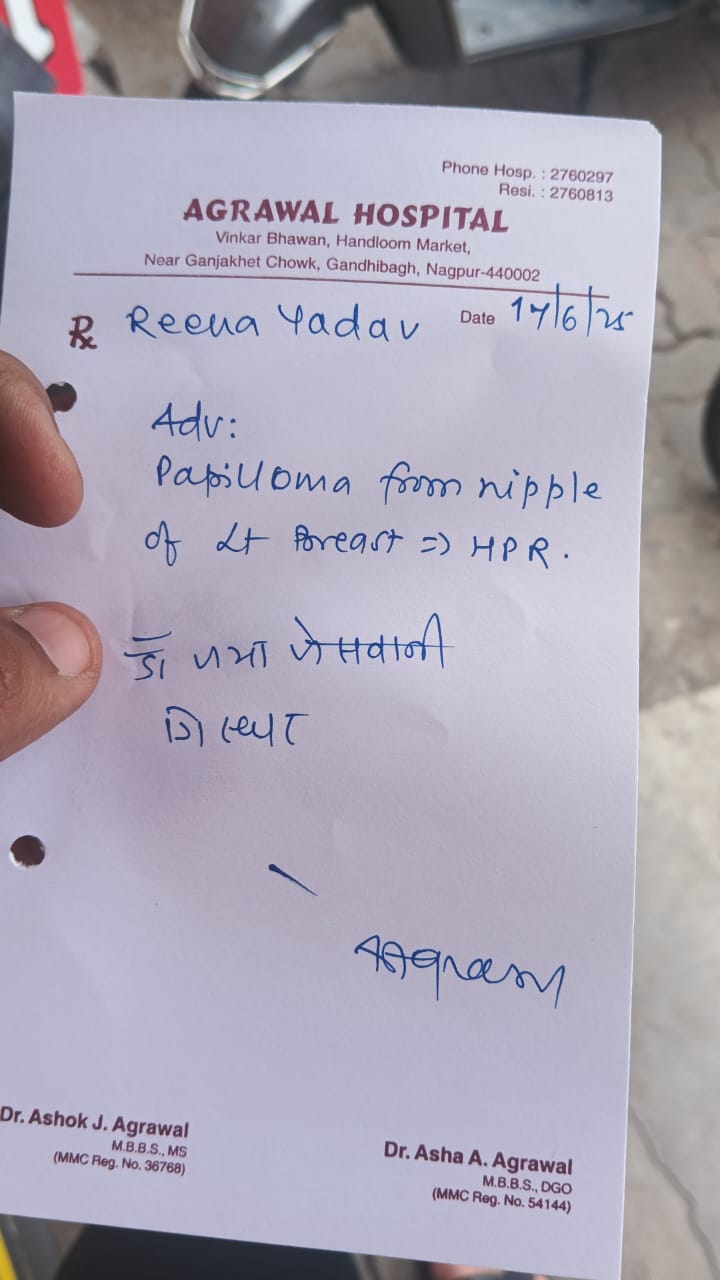 Phone Hosp. : 2760297
Resi. : 2760813
AGRAWAL HOSPITAL
Vinkar Bhawan, Handloom Market,
Near Ganjakhet Chowk, Gandhibagh, Nagpur-440002
Rx Reena Yadav Date 17/6/25
Adv:
Papilloma from nipple
of Lt Breast => HPR.
डॉ
Dr. Ashok J. Agrawal
M.B.B.S., MS
(MMC Reg. No. 36768)
Dr. Asha A. Agrawal
M.B.B.S., DGO
(MMC Reg. No. 54144)